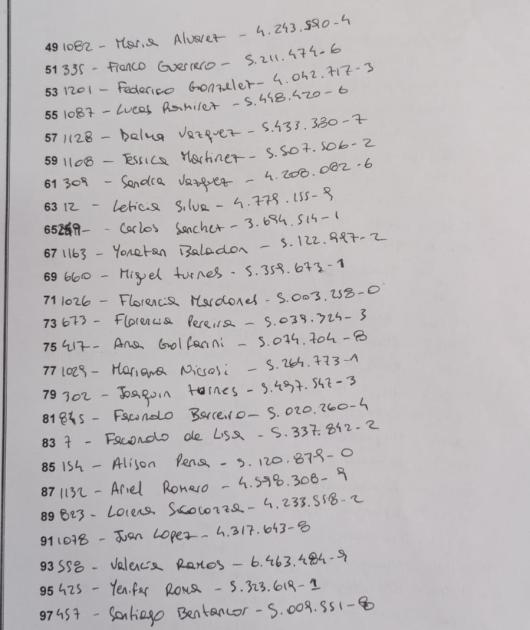 49 1082 - Maria Alvarez - 4.243.590-4
51 335 - Franco Guerrero - 5.211.474-6
53 1201 - Federico Gonzalez - 4.042.717-3
55 1087 - Lucas Ramirez - 5.448.420-6
57 1128 - Dalma Vazquez - 5.433.380-7
59 1108 - Jessica Martinez - 5.507.506-2
61 309 - Sandra Vazquez - 4.208.082-6
63 12 - Leticia Silva - 4.779.155-9
65 - Carlos Sanchez - 3.694.514-1
67 1163 - Yonatan Baladon - 5.122.997-2
69 660 - Miguel turnes - 5.359.673-1
71 1026 - Florencia Mardones - 5.003.258-0
73 673 - Florencia Pereira - 5.039.324-3
75 417 - Ana Golfarini - 5.074.704-8
77 1029 - Mariana Nicrosi - 5.264.773-1
79 302 - Joaquin turnes - 5.497.547-3
81 845 - Facundo Barreiro - 5.020.260-4
83 7 - Facundo de Lisa - 5.337.842-2
85 154 - Alison Pena - 5.120.879-0
87 1132 - Ariel Romero - 4.598.308-9
89 823 - Lorena Scocozza - 4.233.558-2
91 1078 - Juan Lopez - 4.317.643-8
93 558 - Valencia Ramos - 6.463.484-9
95 425 - Yenifer Roma - 5.323.619-1
97 457 - Santiago Bentancor - 5.009.551-8